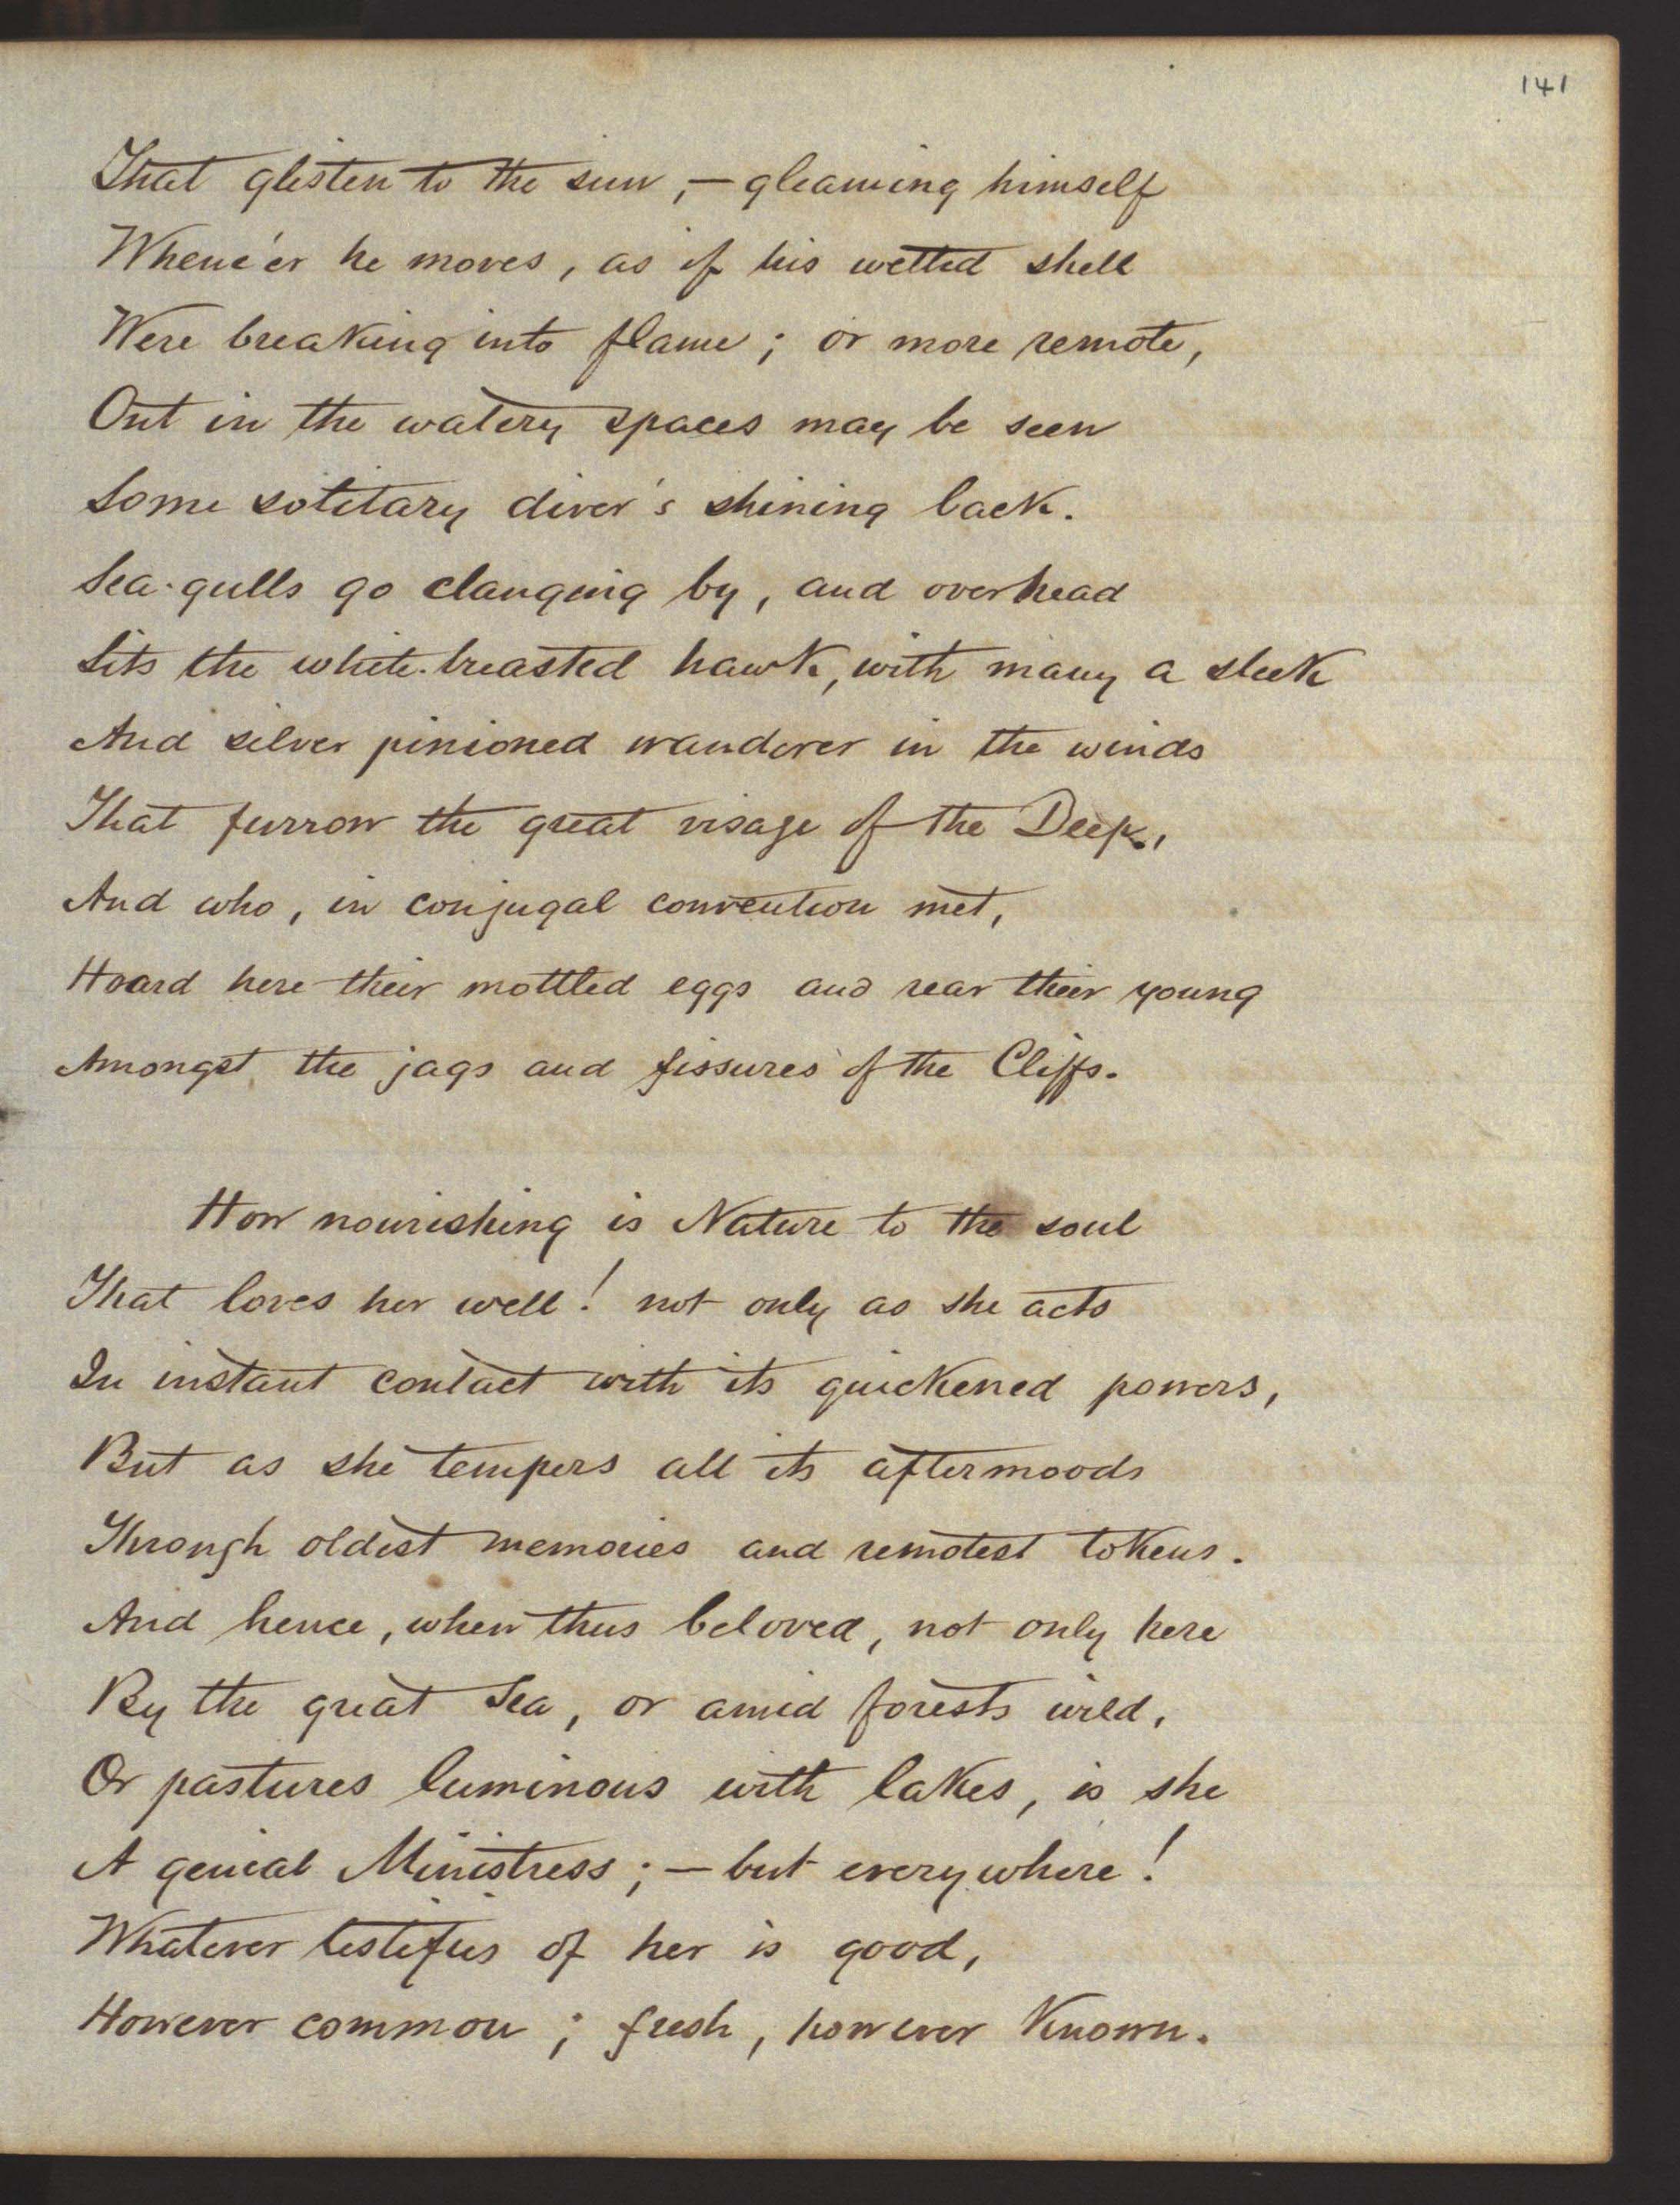 141
That glisten to the sun, — gleaming himself
Whene'er he moves, as if his wetted shell
Were breaking into flame; or more remote,
Out in the watery spaces may be seen
Some solitary diver's shining back.
Sea-gulls go clanging by, and overhead
Sits the white-breasted hawk, with many a sleek
And silver pinioned wanderer in the winds
That furrow the great visage of the Deep,
And who, in conjugal convention met,
Hoard here their mottled eggs and rear their young
Amongst the jags and fissures of the Cliffs.
How nourishing is Nature to the soul
That loves her well! not only as she acts
In instant contact with its quickened powers,
But as she tempers all its aftermoods
Through oldest memories and remotest tokens.
And hence, when thus beloved, not only here
By the great Sea, or amid forests wild,
Or pastures luminous with lakes, is she
A genial Ministress; — but everywhere!
Whatever testifies of her is good,
However common; fresh, however known.